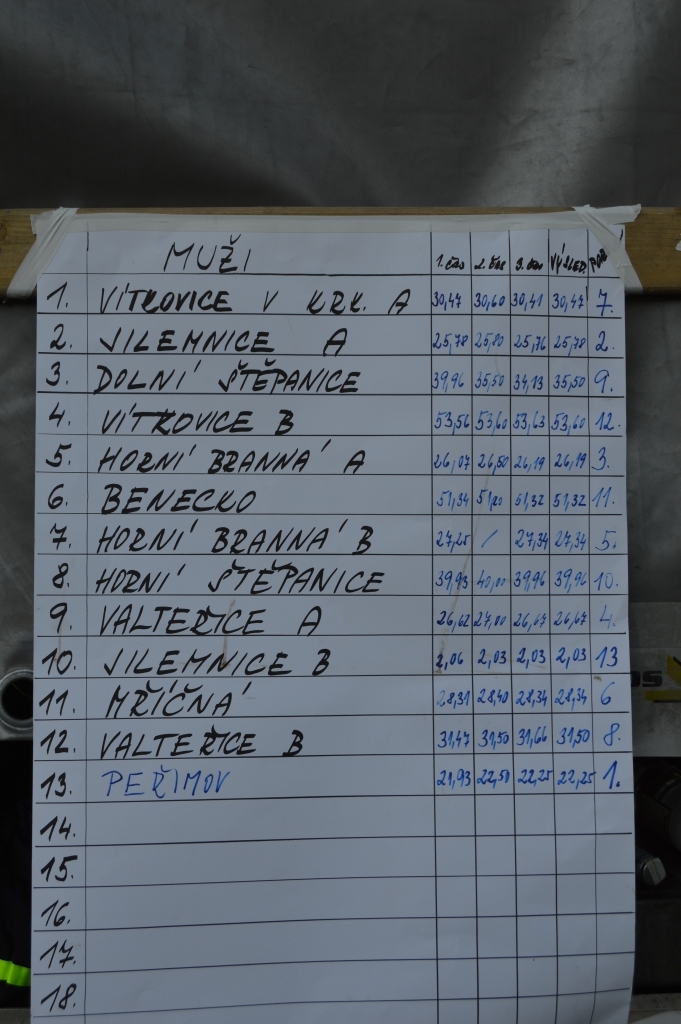 MUŽI 1.čas 2.čas 3.čas VÝSLED. POŘ.
1. VÍTKOVICE V KRK. A 30,47 30,60 30,41 30,47 7.
2. JILEMNICE A 25,78 25,80 25,76 25,78 2.
3. DOLNÍ ŠTĚPANICE 39,96 35,50 34,13 35,50 9.
4. VÍTKOVICE B 53,56 53,60 53,63 53,60 12.
5. HORNÍ BRANNÁ A 26,07 26,50 26,19 26,19 3.
6. BENECKO 51,34 51,20 51,32 51,32 11.
7. HORNÍ BRANNÁ B 27,25 / 27,34 27,34 5.
8. HORNÍ ŠTĚPANICE 39,93 40,00 39,96 39,96 10.
9. VALTEŘICE A 26,62 27,00 26,67 26,67 4.
10. JILEMNICE B 2,06 2,03 2,03 2,03 13
11. MŘÍČNÁ 28,31 28,40 28,34 28,34 6
12. VALTEŘICE B 31,47 31,50 31,66 31,50 8.
13. PEŘIMOV 21,93 22,50 22,25 22,25 1.
14.
15.
16.
17.
18.